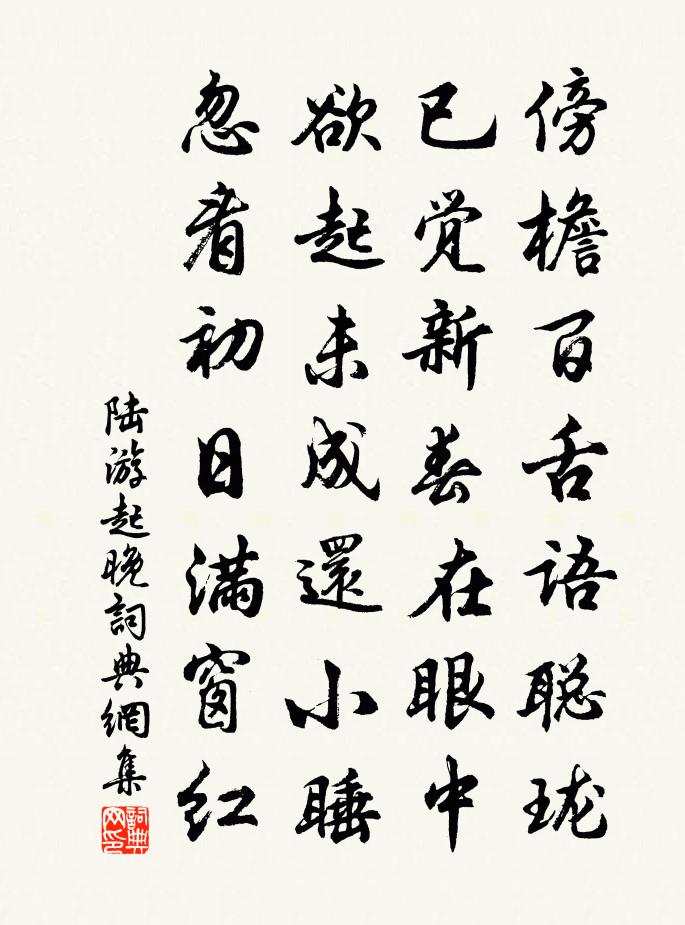 傍檐百舌语聪珑
已觉新春在眼中
欲起未成還小睡
忽看初日满窗红
陆游起晚詞典網集
詞典网印